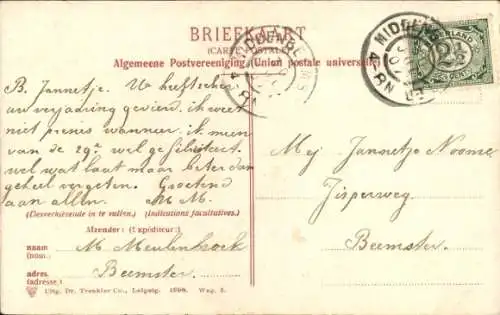 BRIEFKAART
(CARTE POSTALE)
Algemeene Postvereeniging (Union postale universelle)
NEDERLAND
2½
CENT
MIDDENB
B. Jannetje. U heeft zeker
uw verjaardag gevierd. ik weet
niet precies wanneer. ik meen
van de 29e wel gefeliciteerd.
wel wat laat maar beter dan
geheel vergeten. Groetend
aan allen. M M.
(Desverkiezende in te vullen.) (Indications facultatives.)
Afzender: (Expéditeur:)
naam
(nom:)
M Meulenbroek
adres.
(adresse:)
Beemster.
Uitg. Dr. Trenkler Co., Leipzig. 1906. Wag. 2.
Mej Jannetje Noome
Jisperweg.
Beemster.